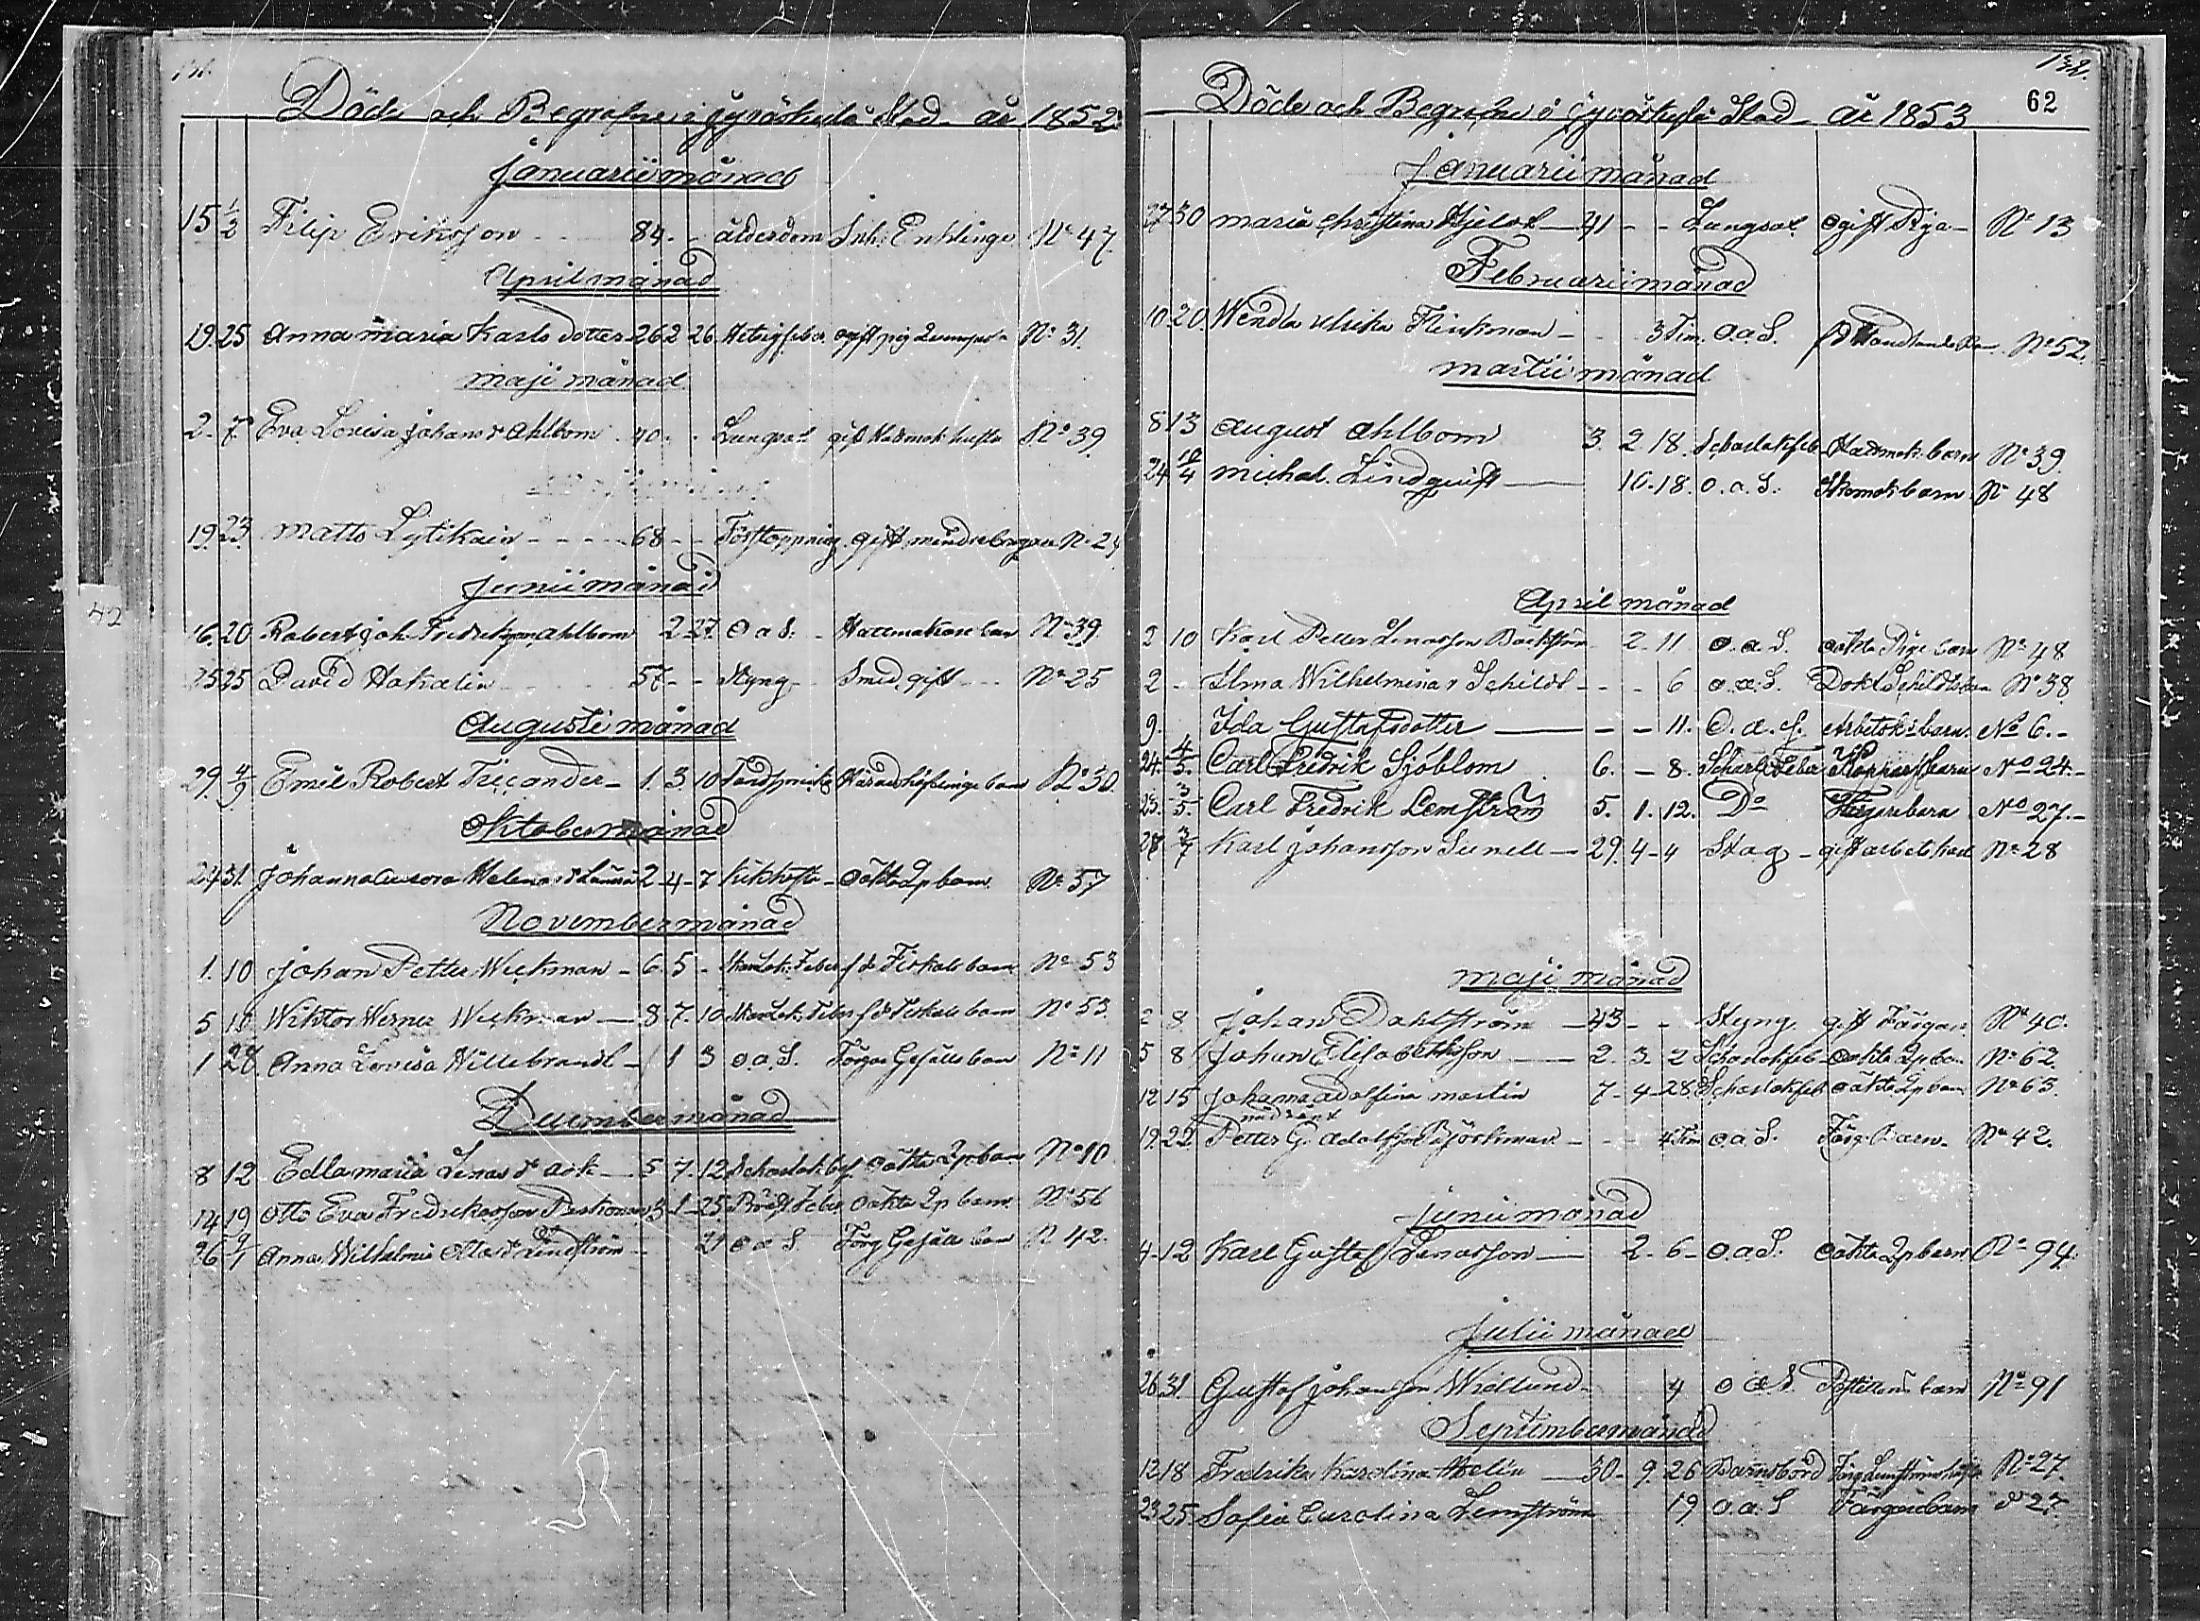 Döde och Begrafne i Jyväskylä Stad år 1852.
Januarii månad
15 1/2 Filip Eriksson 84 - - ålderdom Inh. Enklinge No 47
April månad
19. 25 Anna Maria Karlsdotter 26 2 26 ogift pig No 31.
Maji månad
2. 7. Eva Lovisa Johansdr Ahlbom 40 - - Lungsot gift Hattmak hustru No 39
19. 23. Matts Lytikäin 68 - - Förstoppning gift mindre borgare No 24
Junii månad
16. 20 Robert Joh. Fredriksson Ahlbom 2 27 O a S. Hattmakare barn No 39
25 25 David Hakalin 57 - - Styng Smed gift No 25
Augusti månad
29. 4/9 Emil Robert 1. 3. 10 Häradshöfdinge barn No 30
Oktober månad
24 31. Johanna Aurora Helena 2 - 4 - 7 Kikhosta oäkta barn No 57
November månad
1. 10 Johan Petter Weckman - 6. 5 - Skarlak: Feber f d Fiskals barn No 53
5 10 Wiktor Werner Weckman 8. 7. 10 Skarlak: Feber f d Fiskals barn No 53
1 28. Anna Lovisa Hillebrandt 1 3 o.a.S. Färgar Gesälls barn No 11
December månad
8 12 Edla Maria Lenasdr Ask 5 7. 12 oäkta barn No 10
14 19 Otto Fredriksson 3 - 1 - 25 Feber oäkta barn No 56
26 2/1 Anna Wilhelmina Ottosdr Lindström 21 o a S. Färg Gesälls barn N 42.
62
Döde och Begrafne i Jyväskylä Stad år 1853
Januarii månad
27 30 Maria Christina Hjelt 41 - - Lungsot ogift Piga No 13
Februarii månad
10. 20. Wendla Ulrika Flinkman 3 Tim. O.a.S. No 52.
Martii månad
8 13 August Ahlbom 3. 2. 18. Scharlaksfeb Hattmak. barn No 39
24 10/4 Michel Lindqvist 10. 18. O.a.S. Skomak barn No 48
April månad
2 10 Karl Petter Lenasson Backström 2. 11. o.a.S. oäkta Pige barn No 48
2 - Ilma Wilhelmina Schildt - - - 6 o.a.S. Dokt Schildts barn No 38
9. Ida Gustafsdotter - - 11. O.a.S. Arbetsk: barn. No 6. -
24. 4/5. Carl Fredrik Sjöblom 6. - 8. Scharl Feber barn No 24. -
23. 3/5. Carl Fredrik Lemström 5. 1. 12. Do Färgarebarn No 27. -
28 3/7 Karl Johansson Sunell 29. 4 - 4 Slag gift arbetskarl No 28
Maji månad
2 8 Johan Dahlström 43 - - Styng gift Färgare No 40.
5 8 Johan Elisabethsson 2 - 3. 2 Scharlaksfeb oäkta barn No 62
12 15 Johanna Adolfina Martin 7 - 4 - 28. Scharlaksfeb oäkta barn No 63.
nöddöpt
19. 22. Petter G. Adolfsson Björkman 4 Tim o.a.S. Färg. Barn. No 42.
Junii månad
4 - 12 Karl Gustaf Lenasson 2 - 6 - o.a.S. oäkta barn No 94.
Julii månad
26 31. Gustaf Johansson Widlund 4 o a S. Postillions barn No 91
September månad
12 18 Fredrika Karolina Helin 30 - 9. 26 Barnsbörd Färg Lemströms hustru No 27.
23 25. Sofia Carolina Lemström 19 o.a.S Färgarebarn do 27